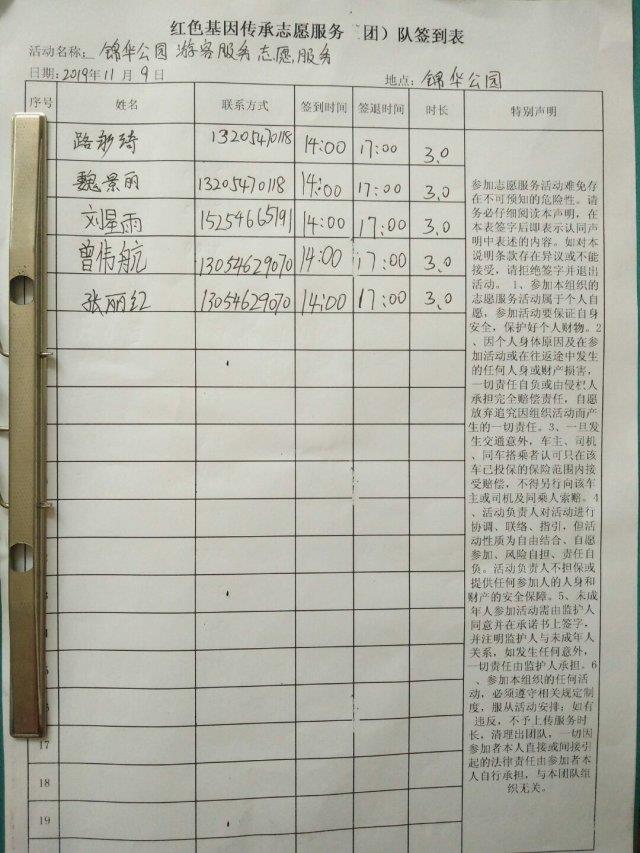 红色基因传承志愿服务 团）队签到表
活动名称: 锦华公园 游客服务志愿服务
日期: 2019年 11 月 9 日 地点: 锦华公园
序号 姓名 联系方式 签到时间 签退时间 时长 特别声明
路彩琦 13205470118 14:00 17:00 3.0
魏景丽 13205470118 14:00 17:00 3.0
刘星雨 15254665191 14:00 17:00 3.0
曾伟航 13054629070 14:00 17:00 3.0
张丽红 13054629070 14:00 17:00 3.0
17
18
19
参加志愿服务活动难免存
在不可预知的危险性。请
务必仔细阅读本声明，在
本表签字后即表示认同声
明中表述的内容。如对本
说明条款存在异议或不能
接受，请拒绝签字并退出
活动。 1、参加本组织的
志愿服务活动属于个人自
愿，参加活动要保证自身
安全，保护好个人财物。2
、因个人身体原因及在参
加活动或在往返途中发生
的任何人身或财产损害，
一切责任自负或由侵权人
承担完全赔偿责任，自愿
放弃追究因组织活动而产
生的一切责任。3、一旦发
生交通意外，车主、司机
、同车搭乘者认可只在该
车已投保的保险范围内接
受赔偿，不得另行向该车
主或司机及同乘人索赔。4
、活动负责人对活动进行
协调、联络、指引，但活
动性质为自由结合、自愿
参加、风险自担、责任自
负。活动负责人不担保或
提供任何参加人的人身和
财产的安全保障。5、未成
年人参加活动需由监护人
同意并在承诺书上签字，
并注明监护人与未成年人
关系，如发生任何意外，
一切责任由监护人承担。6
、参加本组织的任何活
动，必须遵守相关规定制
度，服从活动安排；如有
违反，不予上传服务时
长，清理出团队，一切因
参加者本人直接或间接引
起的法律责任由参加者本
人自行承担，与本团队组
织无关。